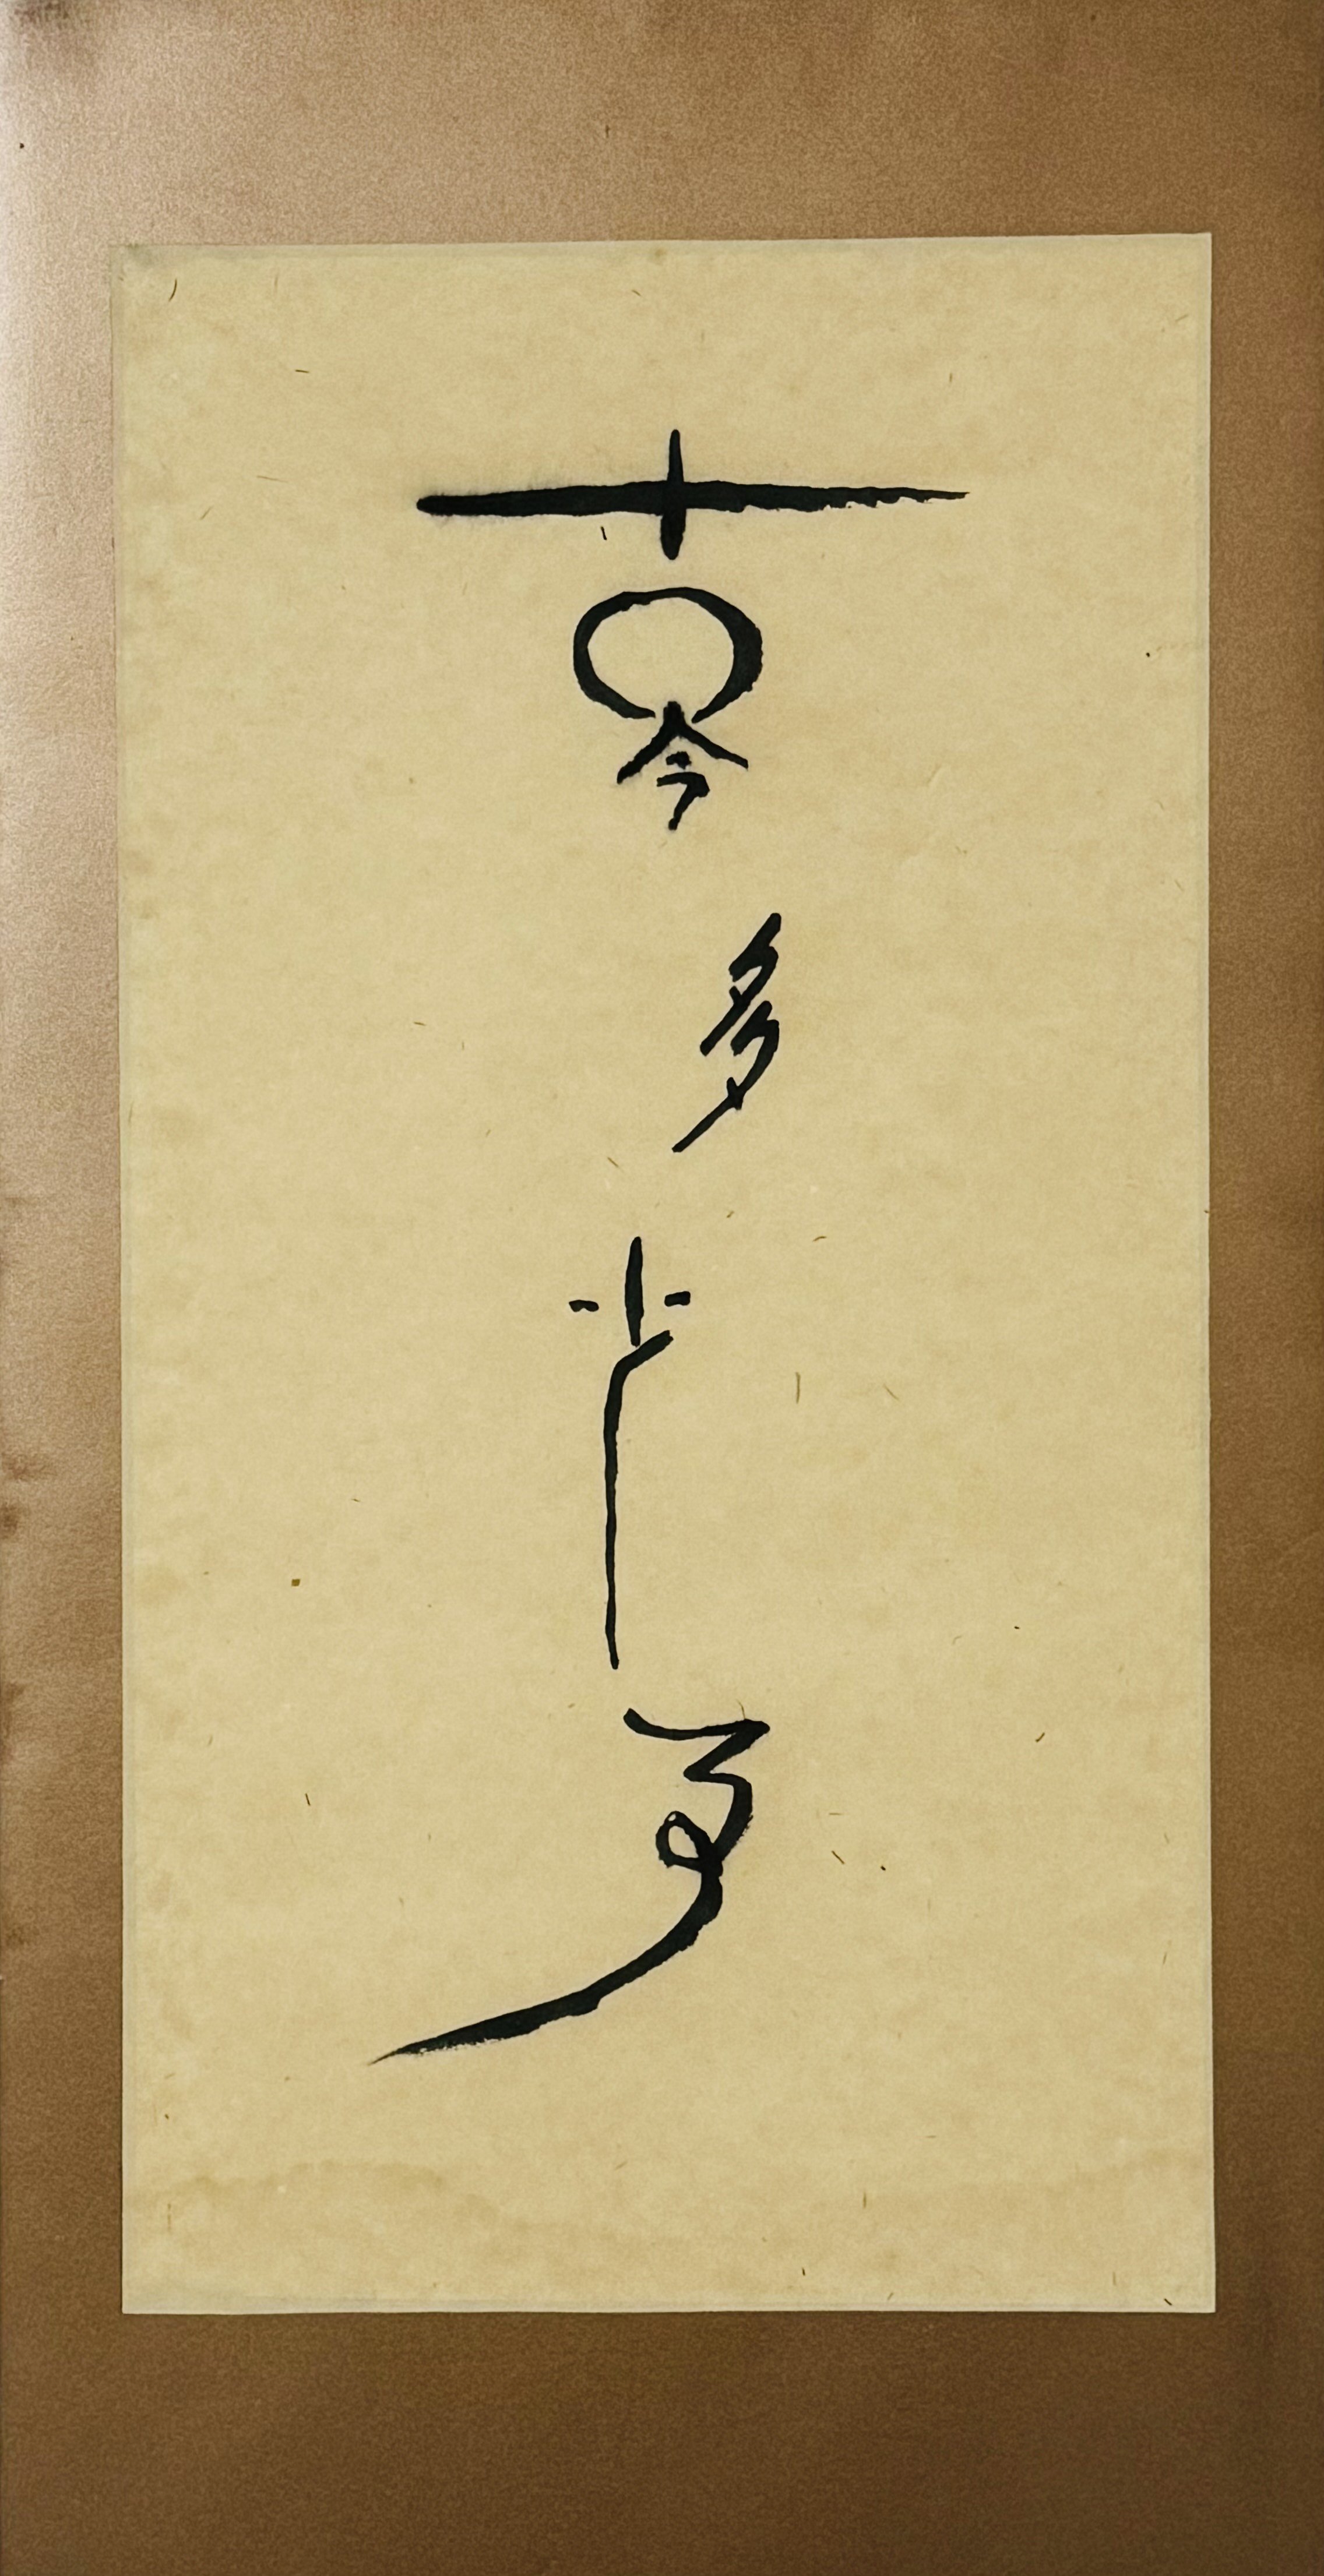 古今多少事